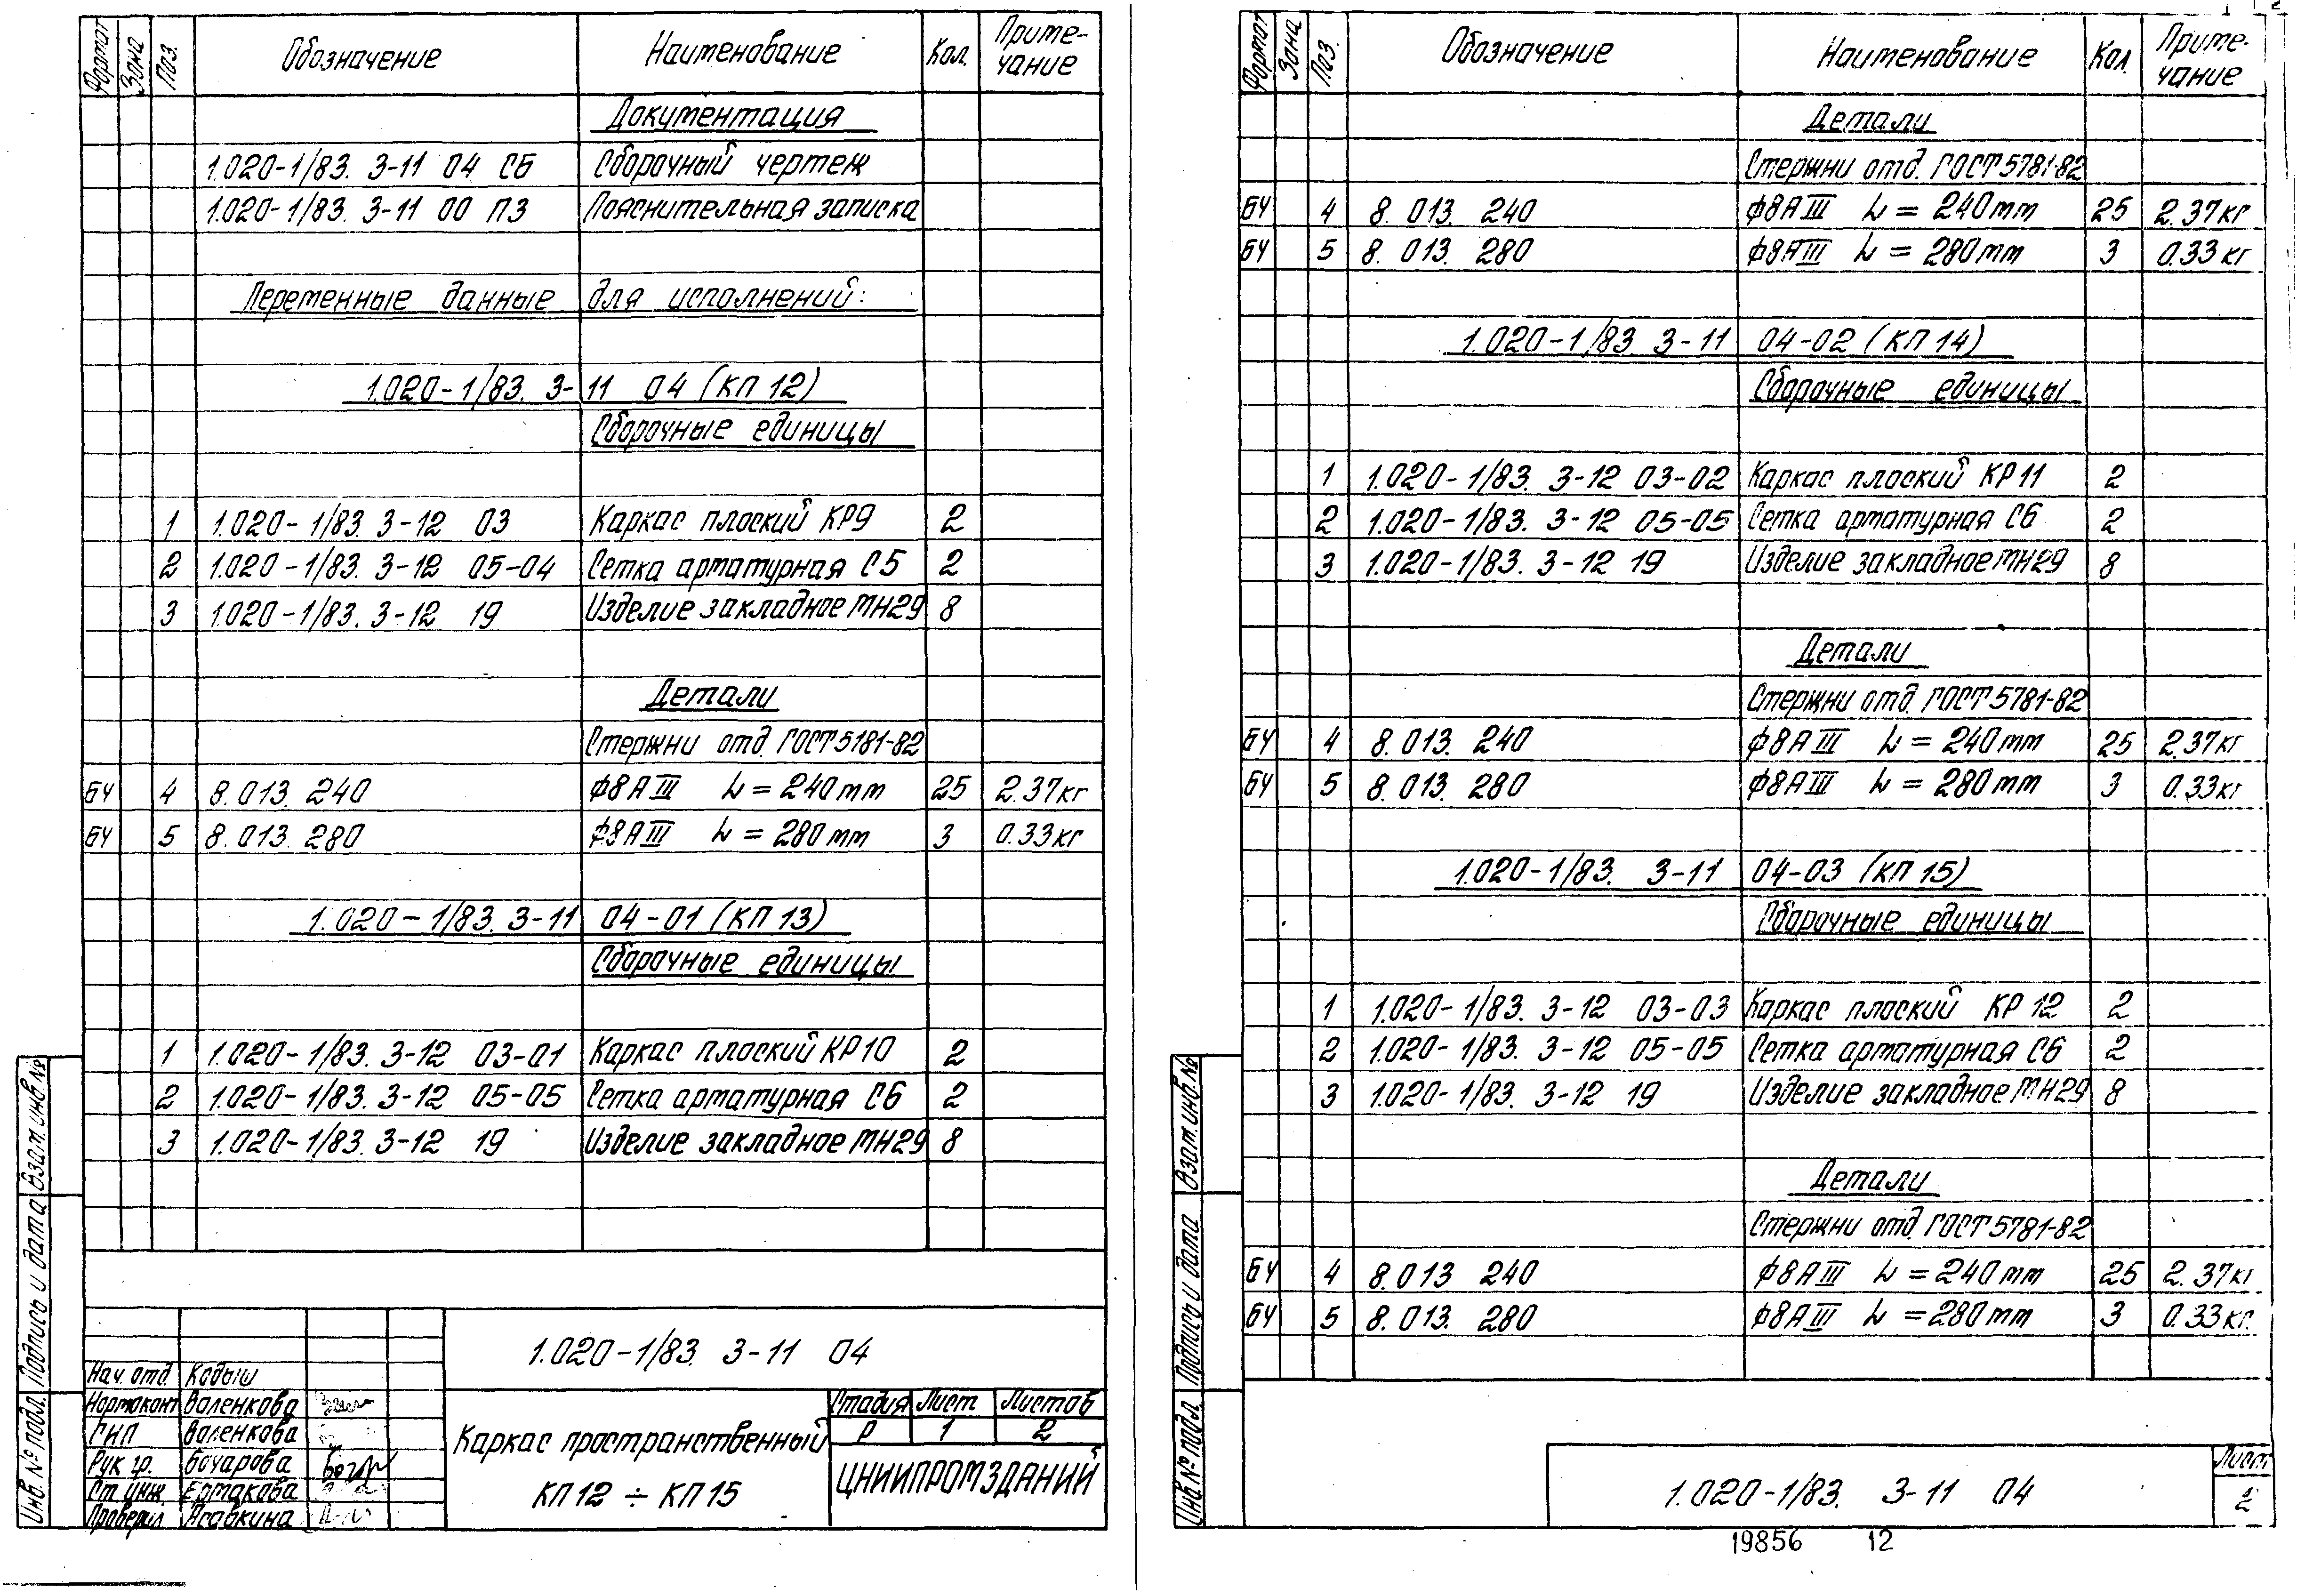 Формат Зона Поз. Обозначение Наименование Кол. Приме-чание
Документация
1.020-1/83. 3-11 04 СБ Сборочный чертеж
1.020-1/83. 3-11 00 ПЗ Пояснительная записка
Переменные данные для исполнений:
1.020-1/83. 3-11 04 (КП 12)
Сборочные единицы
1 1.020-1/83 3-12 03 Каркас плоский КР9 2
2 1.020-1/83. 3-12 05-04 Сетка арматурная С5 2
3 1.020-1/83. 3-12 19 Изделие закладное МН29 8
Детали
Стержни отд. ГОСТ 5181-82
БЧ 4 8.013. 240 ф8АIII L = 240мм 25 2.37кг
БЧ 5 8.013. 280 ф8АIII L = 280мм 3 0.33кг
1.020-1/83. 3-11 04-01 (КП 13)
Сборочные единицы
1 1.020-1/83. 3-12 03-01 Каркас плоский КР10 2
2 1.020-1/83. 3-12 05-05 Сетка арматурная С6 2
3 1.020-1/83. 3-12 19 Изделие закладное МН29 8
Взам. инв. №
Подпись и дата
Инв. № подл.
1.020-1/83. 3-11 04
Нач. отд. Кодыш
Нормоконт Валенкова
ГИП Валенкова
Рук гр. Бочарова
Ст. инж. Ермакова
Проверил Асавкина
Каркас пространственный
КП 12 ÷ КП 15
Стадия Лист Листов
Р 1 2
ЦНИИПРОМЗДАНИЙ
Формат Зона Поз. Обозначение Наименование Кол. Приме-чание
Детали
Стержни отд. ГОСТ 5781-82
БЧ 4 8. 013. 240 ф8АIII L = 240мм 25 2.37кг
БЧ 5 8. 013. 280 ф8АIII L = 280мм 3 0.33кг
1.020-1/83 3-11 04-02 (КП 14)
Сборочные единицы
1 1.020-1/83. 3-12 03-02 Каркас плоский КР11 2
2 1.020-1/83. 3-12 05-05 Сетка арматурная С6 2
3 1.020-1/83. 3-12 19 Изделие закладное МН29 8
Детали
Стержни отд. ГОСТ 5781-82
БЧ 4 8.013. 240 ф8АIII L = 240мм 25 2.37кг
БЧ 5 8.013. 280 ф8АIII L = 280мм 3 0.33кг
1.020-1/83. 3-11 04-03 (КП 15)
Сборочные единицы
1 1.020-1/83. 3-12 03-03 Каркас плоский КР 12 2
2 1.020-1/83. 3-12 05-05 Сетка арматурная С6 2
3 1.020-1/83. 3-12 19 Изделие закладное МН29 8
Детали
Стержни отд. ГОСТ 5781-82
БЧ 4 8.013 240 ф8АIII L = 240мм 25 2.37кг
БЧ 5 8.013. 280 ф8АIII L = 280мм 3 0.33кг.
Взам. инв. №
Подпись и дата
Инв № подл.
1.020-1/83. 3-11 04
Лист
2
19856 12